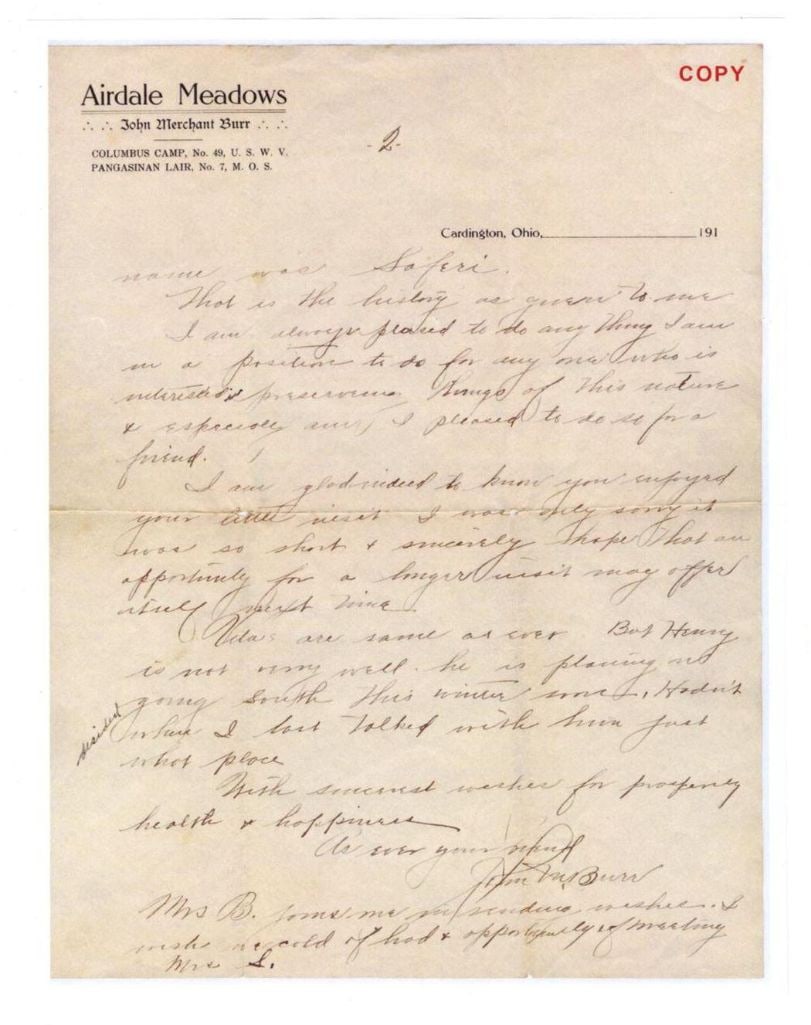 COPY
Airdale Meadows
∴ ∴ John Merchant Burr ∴ ∴
COLUMBUS CAMP, No. 49, U. S. W. V.
PANGASINAN LAIR, No. 7, M. O. S.
-2-
Cardington, Ohio, 191
name was Saferi.
That is the history as given to me
I am always pleased to do any thing I am
in a position to do for any one who is
interested in preserving things of this nature
& especially am I pleased to do so for a
friend.
I am glad indeed to know you enjoyed
your little visit I was only sorry it
was so short & sincerely hope that an
opportunity for a longer visit may offer
itself next time.
are same as ever But Henry
is not very well. he is planing on
going South this winter some, Hadn't
decided when I last talked with him just
what place
With sincerest wishes for prosperity
health & happiness
As ever your friend
John M. Burr
Mrs B. joins me in sending wishes. &
wish we could of had & opportunity of meeting
Mrs S.